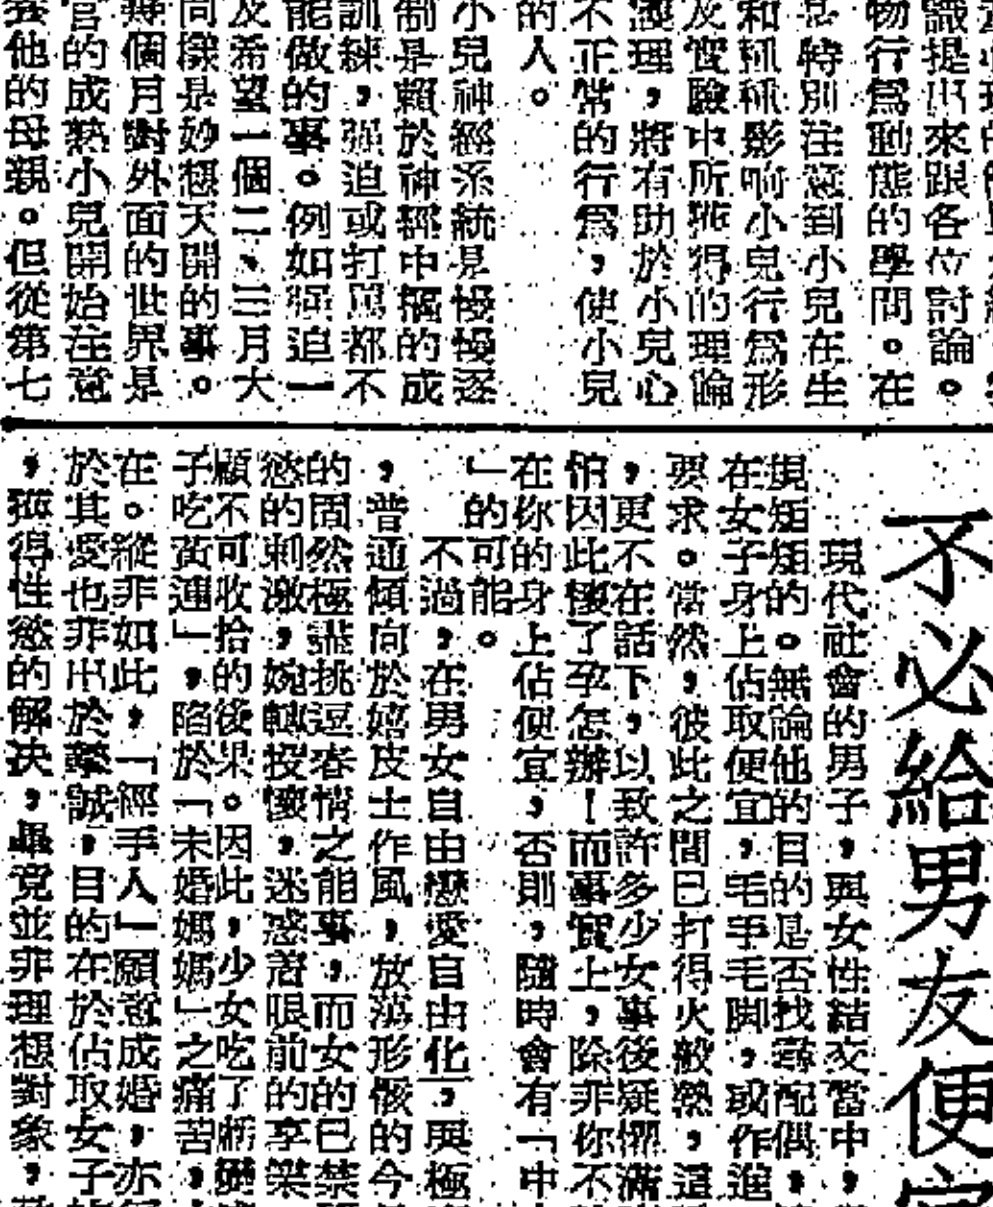 識提出來跟各位討論。
物行為動態的學問。在
是特別注意到小兒在生
和種種影响小兒行為形
及實驗中所獲得的理論
護理,將有助於小兒心
不正常的行為,使小兒
的人。
小兒神經系統是慢慢逐
制是賴於神經中樞的成
訓練,强迫或打罵都不
能做的事。例如强迫一
及希望一個二、三月大
同樣是妙想天開的事。
個月對外面的世界是
官的成熟小兒開始注意
他的母親。但從第七
不必給男友便宜
現代社會的男子,與女性結交當中,
規矩矩的。無論他的目的是否找尋配偶,
在女子身上佔取便宜,毛手毛脚,或作進
要求。當然,彼此之間已打得火般熱,這
,更不在話下,以致許多少女事後疑懼滿
怕因此懷了孕怎辦!而事實上,除非你不
在你的身上佔便宜,否則,隨時會有「中
」的可能。
不過,在男女自由戀愛自由化,與極
,普通傾向於嬉皮士作風,放蕩形骸的今
的固然極盡挑逗春情之能事,而女的已禁
慾的刺激,婉轉投懷,迷惑着眼前的享樂
顧不可收拾的後果。因此,少女吃了
子吃黃連」,陷於「未婚媽媽」之痛苦,
在。縱非如此,「經手人」願意成婚,亦
於其愛也非出於摯誠,目的在於佔取女子
,獲得性慾的解决,畢竟並非理想對象,